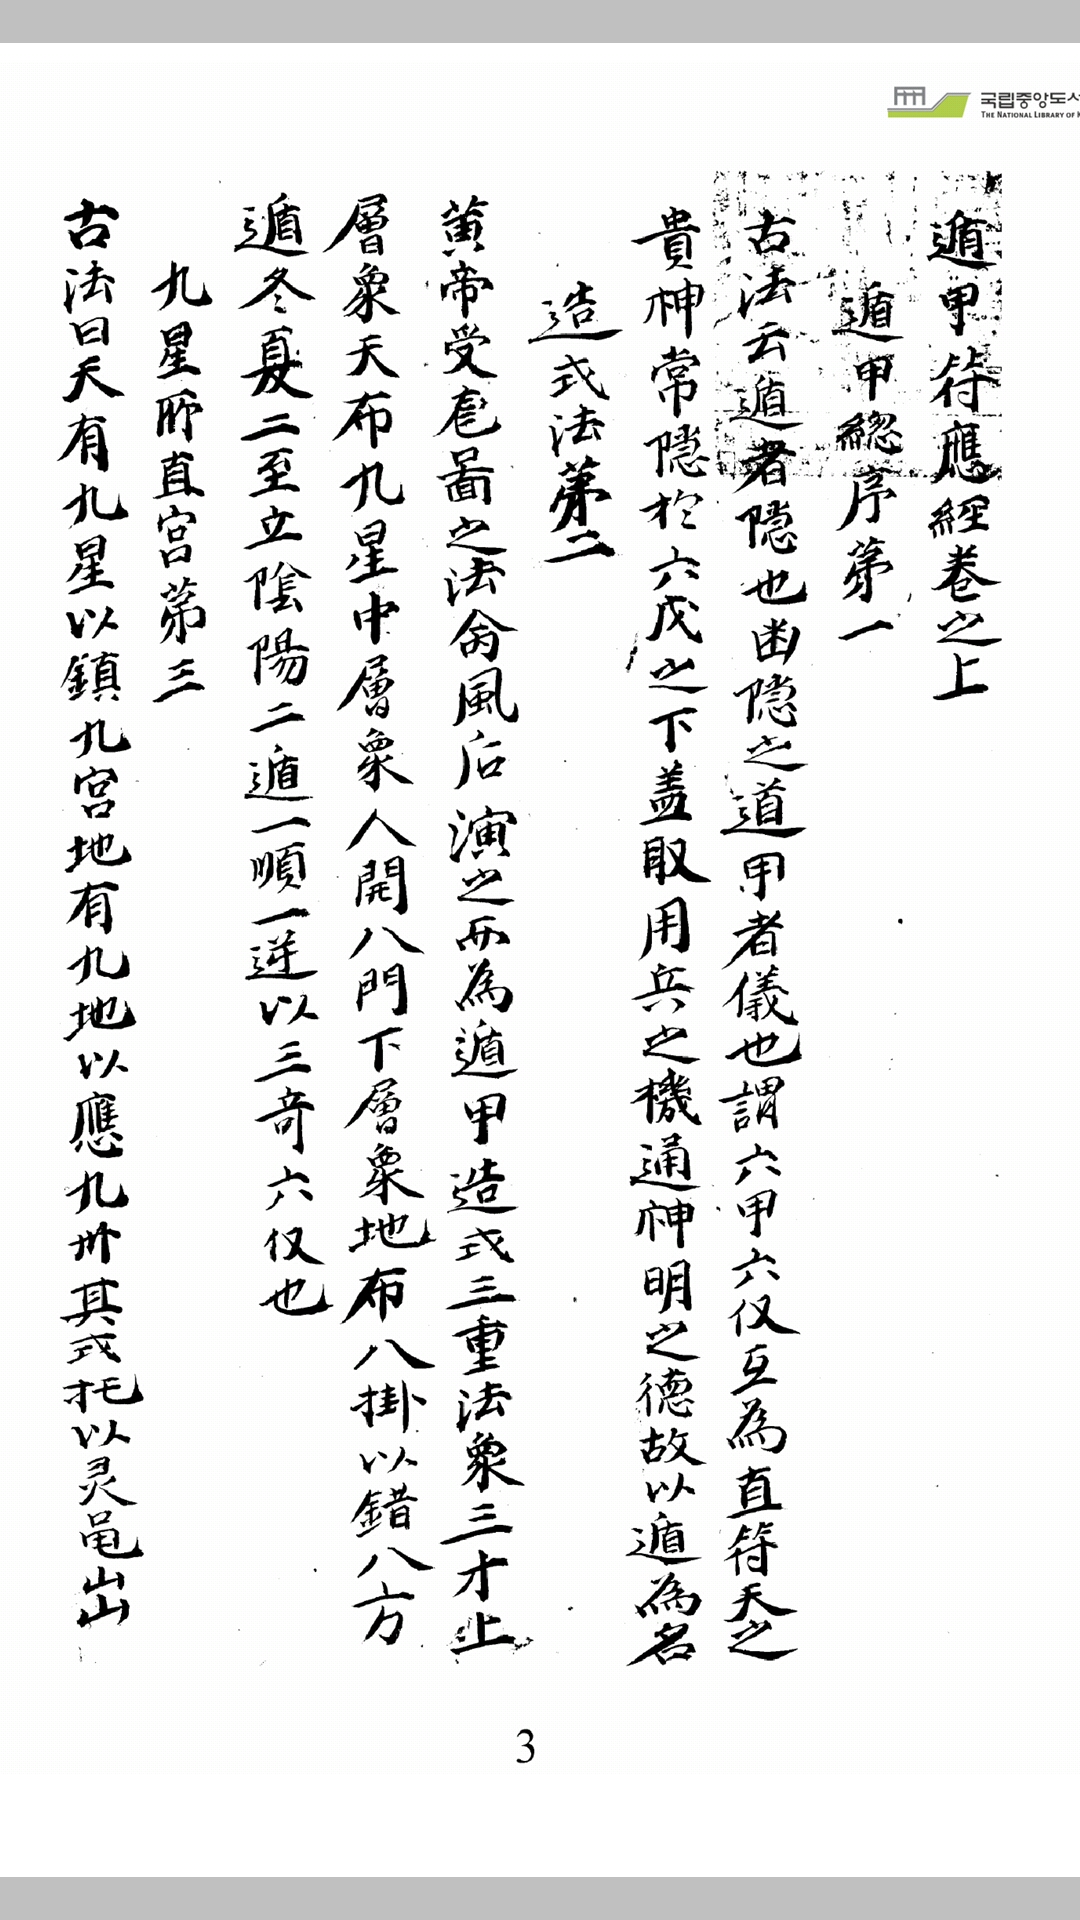 국립중앙도서
THE NATIONAL LIBRARY OF K
遁甲符應經卷之上
遁甲總序第一
古法云遁者隱也幽隱之道甲者儀也謂六甲六仪互為直符天之
貴神常隱於六戊之下盖取用兵之機通神明之德故以遁為名
造式法第二
黃帝受啚之法命風后演之而為遁甲造式三重法象三才上
層象天布九星中層象人開八門下層象地布八掛以錯八方
遁冬夏二至立陰陽二遁一順一逆以三奇六仪也
九星所直宮第三
古法曰天有九星以鎮九宮地有九地以應九州其式托以灵黾出
3